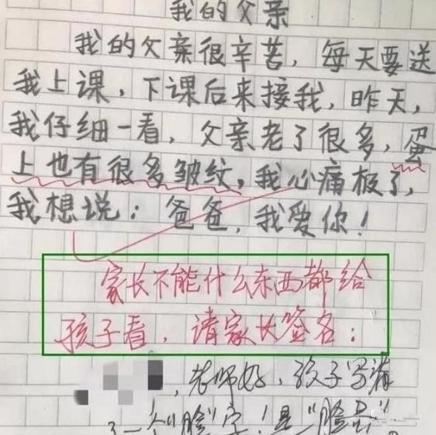 我的父亲
我的父亲很辛苦，每天要送
我上课，下课后来接我，昨天，
我仔细一看，父亲老了很多，蛋
上也有很多皱纹，我心痛极了，
我想说：爸爸，我爱你！
家长不能什么东西都给
孩子看，请家长签名：
，老师好，孩子写
一个"脸"字！是"脸